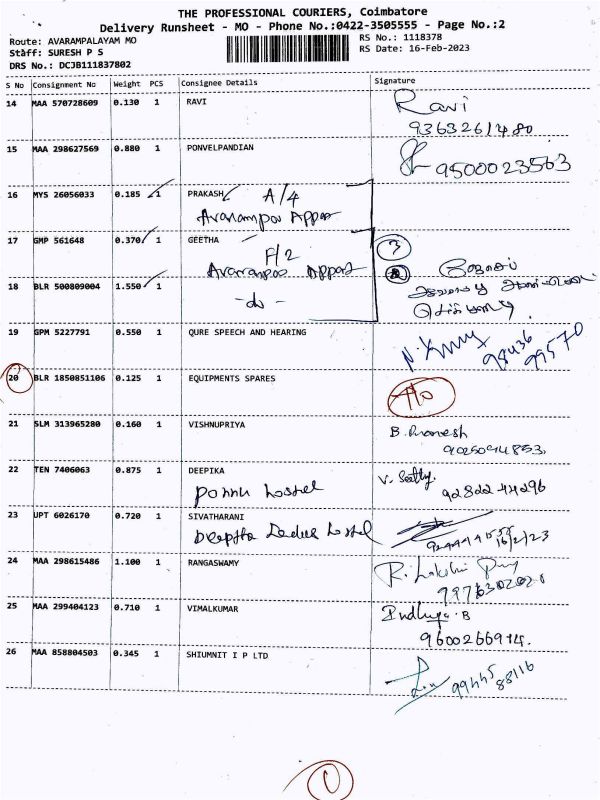 THE PROFESSIONAL COURIERS, Coimbatore
Delivery Runsheet - MO - Phone No.:0422-3505555 - Page No.:2
Route: AVARAMPALAYAM MO
RS No.: 1118378
Staff: SURESH P S
RS Date: 16-Feb-2023
DRS No.: DCJB111837802
S No Consignment No Weight PCS Consignee Details Signature
14 MAA 570728609 0.130 1 RAVI Ravi
9363261480
15 MAA 298627569 0.880 1 PONVELPANDIAN
9500023563
16 MYS 26056033 0.185 1 PRAKASH A/4
17 GMP 561648 0.370 1 GEETHA
F/2
3
18 BLR 500809004 1.550 1
- do -
19 GPM 5227791 0.550 1 QURE SPEECH AND HEARING
98436
99570
20 BLR 1850851106 0.125 1 EQUIPMENTS SPARES
21 SLM 313965280 0.160 1 VISHNUPRIYA B. Pranesh
22 TEN 7406063 0.875 1 DEEPIKA
Ponnu hostel
92822 44296
23 UPT 6026170 0.720 1 SIVATHARANI
16/2/23
24 MAA 298615486 1.100 1 RANGASWAMY
25 MAA 299404123 0.710 1 VIMALKUMAR
9600266914.
26 MAA 858804503 0.345 1 SHIUMNIT I P LTD
99445
88116